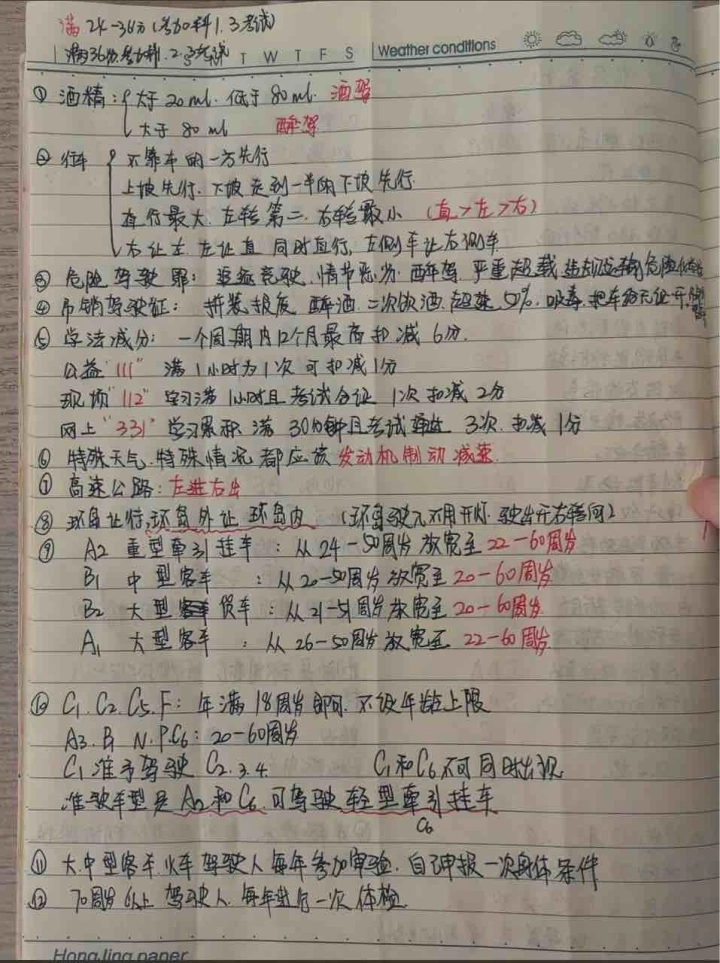 满24-36分(参加科1.3考试)
满36分.参加科1.2.3考试 T W T F S Weather conditions
① 酒精:大于20ml.低于80ml.酒驾
大于80ml 醉驾
② 行车 不靠车的一方先行
上坡先行.下坡走到一半的下坡先行.
直行最大.左转第二.右转最小(直>左>右)
右让左.左让直.同时直行.左侧车让右侧车
③ 危险驾驶罪:追逐竞驶.情节恶劣.醉驾.严重超载 危险
④ 吊销驾驶证:拼装报废 醉酒.二次饮酒.超速50%.吸毒.把车给无证开
⑤ 学法减分:一个周期内12个月最高扣减6分.
公益"111" 满1小时为1次可扣减1分
现场"112" 学习满1小时且考试合证 1次扣减2分
网上"331" 学习累积满30分钟且考试 3次.扣减1分
⑥ 特殊天气.特殊情况都应该发动机制动减速.
⑦ 高速公路:左进右出
⑧ 环岛让行.环岛外让环岛内(环岛驶入不用开灯.驶出开右转向)
⑨ A2 重型牵引挂车:从24-50周岁放宽至22-60周岁
B1 中型客车:从20-50周岁放宽至20-60周岁
B2 大型货车:从21-51周岁放宽至20-60周岁
A1 大型客车:从26-50周岁放宽至22-60周岁
⑩ C1.C2.C5.F:年满18周岁即可.不设年龄上限
A3.B N.P.C6:20-60周岁
C1准予驾驶C2.3.4 C1和C6不可同时出现
准驾车型是A2和C6.可驾驶轻型牵引挂车
C6
⑪ 大.中型客车.火车驾驶人每年参加审验.自己申报一次身体条件
⑫ 70周岁以上驾驶人.每年进行一次体检
HongJing paper